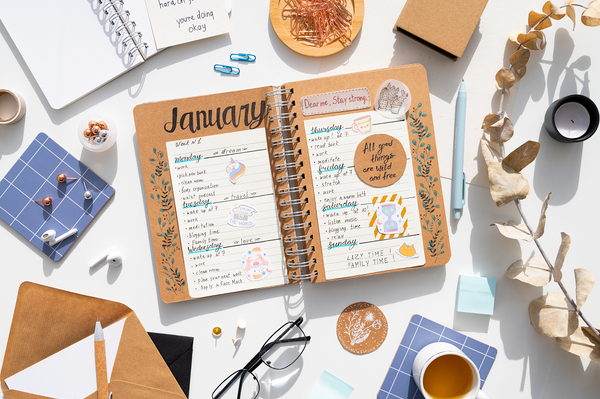 hard on
you're doing
okay
January
Week №1
Monday
dream
wake up at 7
work
clean room
busy organisation
waist podcast
Tuesday
travel
wake up at 7
work
meditation
blogging time
Family time
Wednesday
love
wake up at 7
work
clean room
plan your next week
Apply a Face Mask
Dear me, Stay strong.
Thursday
wake up at 7
read book
work
meditate
Friday
wake up at 7
stretch
work
enjoy a warm bath
Saturday
wake up at 10
listen music
blogging time
relax
Sunday
LAZY TIME!
FAMILY TIME!
All good
things are
wild
and free